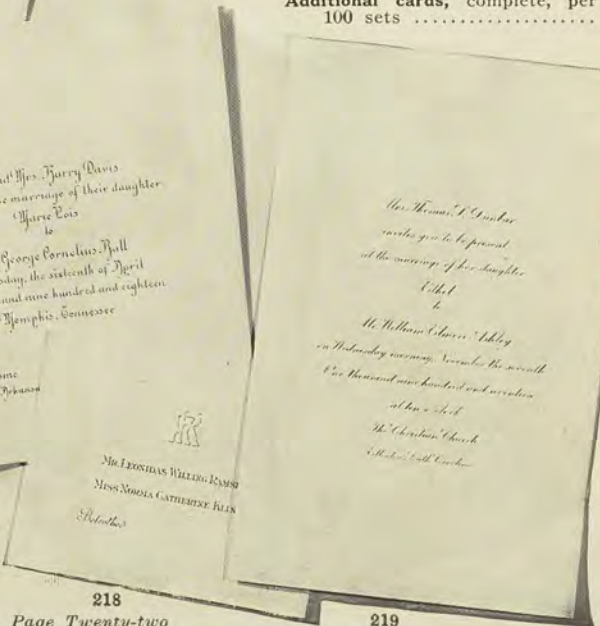 Additional cards, complete, per
100 sets ....................
Mrs. Harry Davis
marriage of their daughter
Marie Lois
to
George Cornelius Ball
the sixteenth of April
and nine hundred and eighteen
Memphis, Tennessee
Mr. Leonidas Willing
Miss Norma Catherine
Betrothed
Mrs. Thomas S. Dunbar
invites you to be present
at the marriage of her daughter
Ethel
to
Mr. William Ashley
on Wednesday morning, November the seventh
One thousand nine hundred and seventeen
at ten o'clock
The Christian Church
218
Page Twenty-two
219